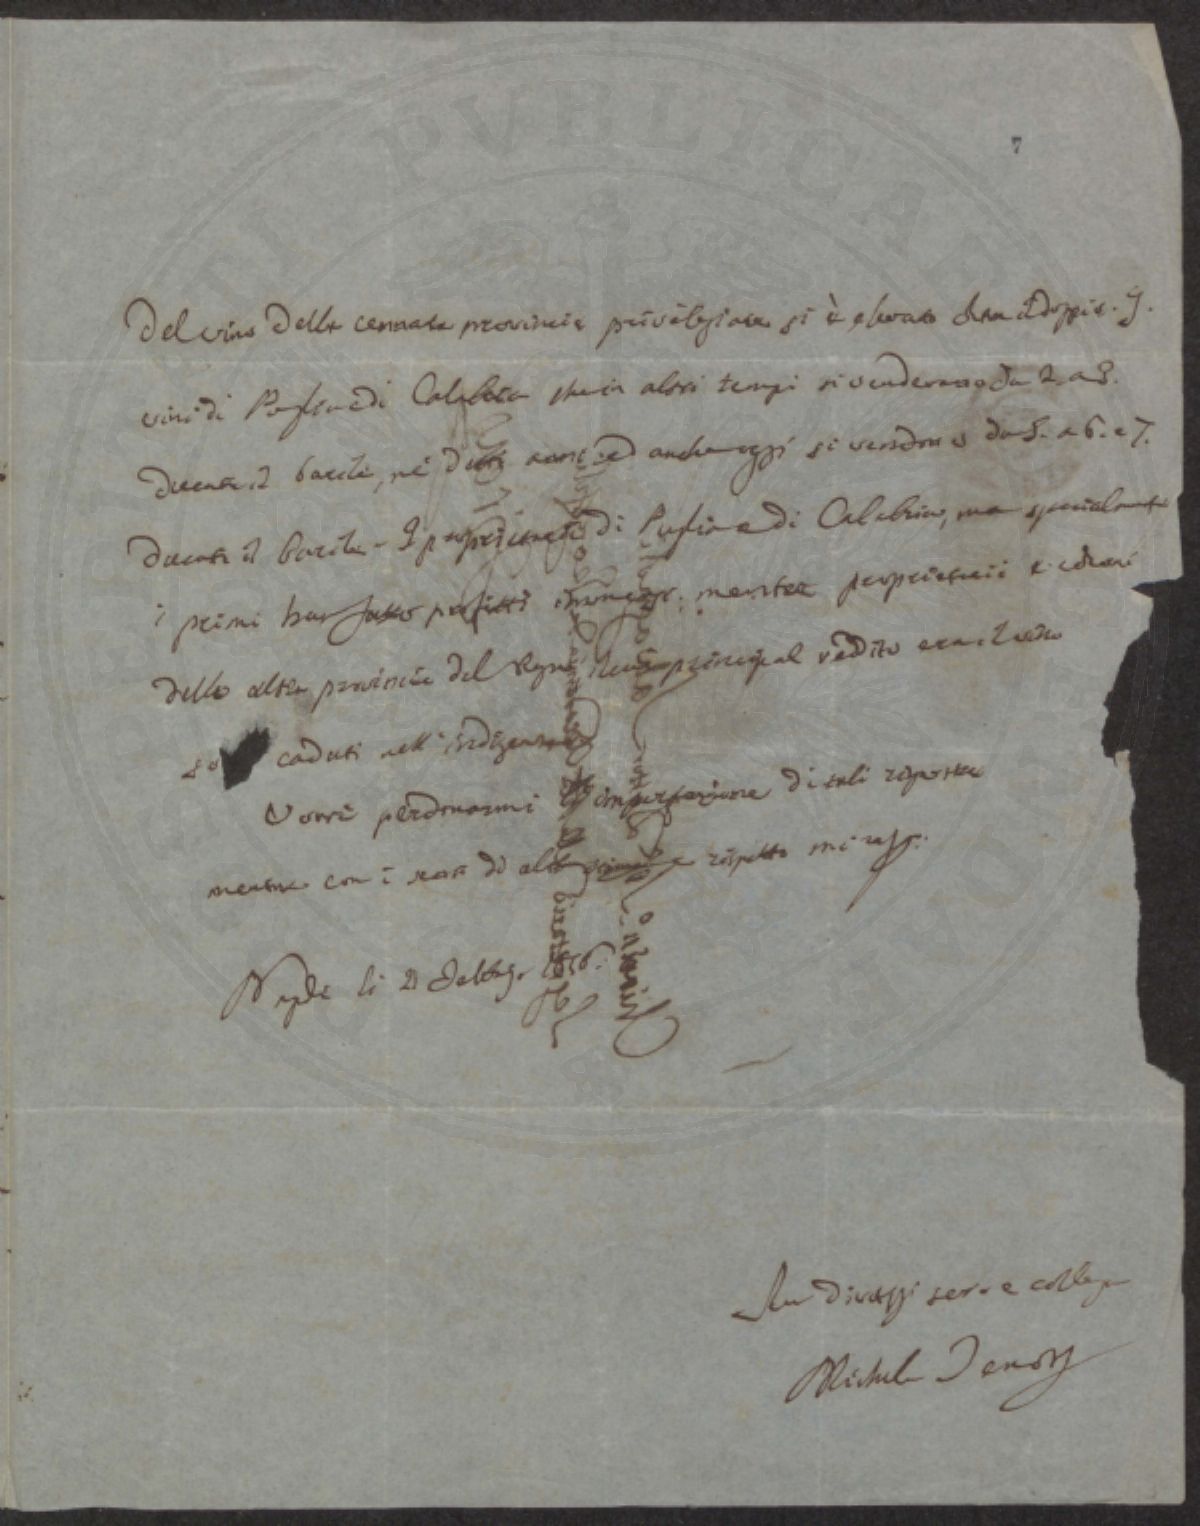 7
Del vino delle cennate provincie privilegiate si è elevato oltra il doppio. I
vini di Puglia e di Calabria che in altri tempi si vendevano da 2. a 3.
ducati il barile, ne' detti anni ed anche oggi si vendono da 5. a 6. e 7.
ducati il barile. I proprietarj di Puglia e di Calabria, ma specialmente
i primi han fatto profitti immensi: mentre proprietarii e coloni
delle altre provincie del Regno il cui principal reddito era il vino
so caduti nell'indigenza
Vorrà perdonarmi imperfezione di tali risposte
mentre con i sensi di alta stima e rispetto mi
Napoli li 21 1856.
Suo serv. e collega
Michele Tenore